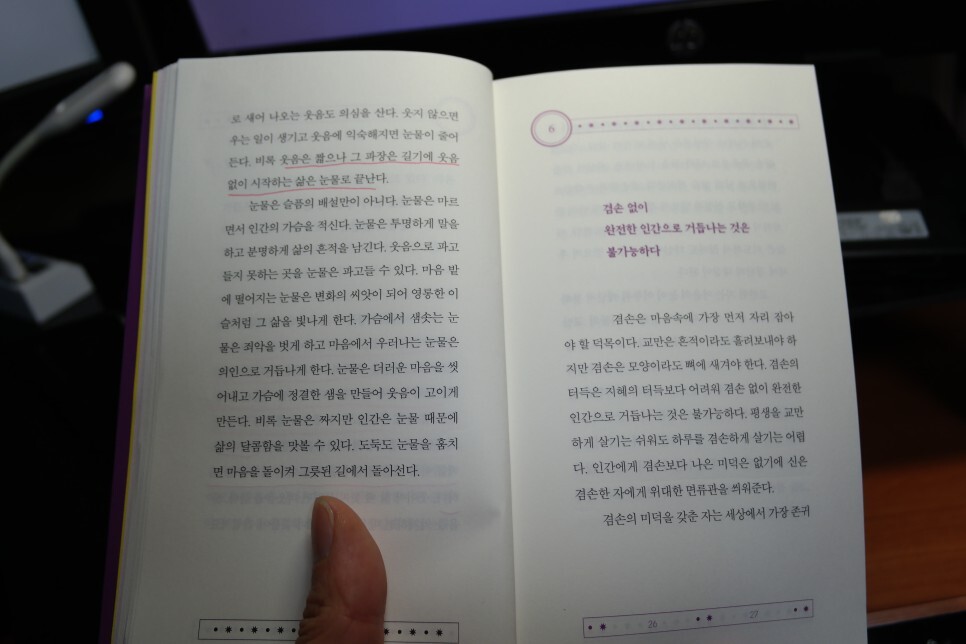 로 새어 나오는 웃음도 의심을 산다. 웃지 않으면
우는 일이 생기고 웃음에 익숙해지면 눈물이 줄어
든다. 비록 웃음은 짧으나 그 파장은 길기에 웃음
없이 시작하는 삶은 눈물로 끝난다.
눈물은 슬픔의 배설만이 아니다. 눈물은 마르
면서 인간의 가슴을 적신다. 눈물은 투명하게 말을
하고 분명하게 삶의 흔적을 남긴다. 웃음으로 파고
들지 못하는 곳을 눈물은 파고들 수 있다. 마음 밭
에 떨어지는 눈물은 변화의 씨앗이 되어 영롱한 이
슬처럼 그 삶을 빛나게 한다. 가슴에서 샘솟는 눈
물은 죄악을 벗게 하고 마음에서 우러나는 눈물은
의인으로 거듭나게 한다. 눈물은 더러운 마음을 씻
어내고 가슴에 정결한 샘을 만들어 웃음이 고이게
만든다. 비록 눈물은 짜지만 인간은 눈물 때문에
삶의 달콤함을 맛볼 수 있다. 도둑도 눈물을 훔치
면 마음을 돌이켜 그릇된 길에서 돌아선다.
6
겸손 없이
완전한 인간으로 거듭나는 것은
불가능하다
겸손은 마음속에 가장 먼저 자리 잡아
야 할 덕목이다. 교만은 흔적이라도 흘려보내야 하
지만 겸손은 모양이라도 뼈에 새겨야 한다. 겸손의
터득은 지혜의 터득보다 어려워 겸손 없이 완전한
인간으로 거듭나는 것은 불가능하다. 평생을 교만
하게 살기는 쉬워도 하루를 겸손하게 살기는 어렵
다. 인간에게 겸손보다 나은 미덕은 없기에 신은
겸손한 자에게 위대한 면류관을 씌워준다.
겸손의 미덕을 갖춘 자는 세상에서 가장 존귀
26 27
hp